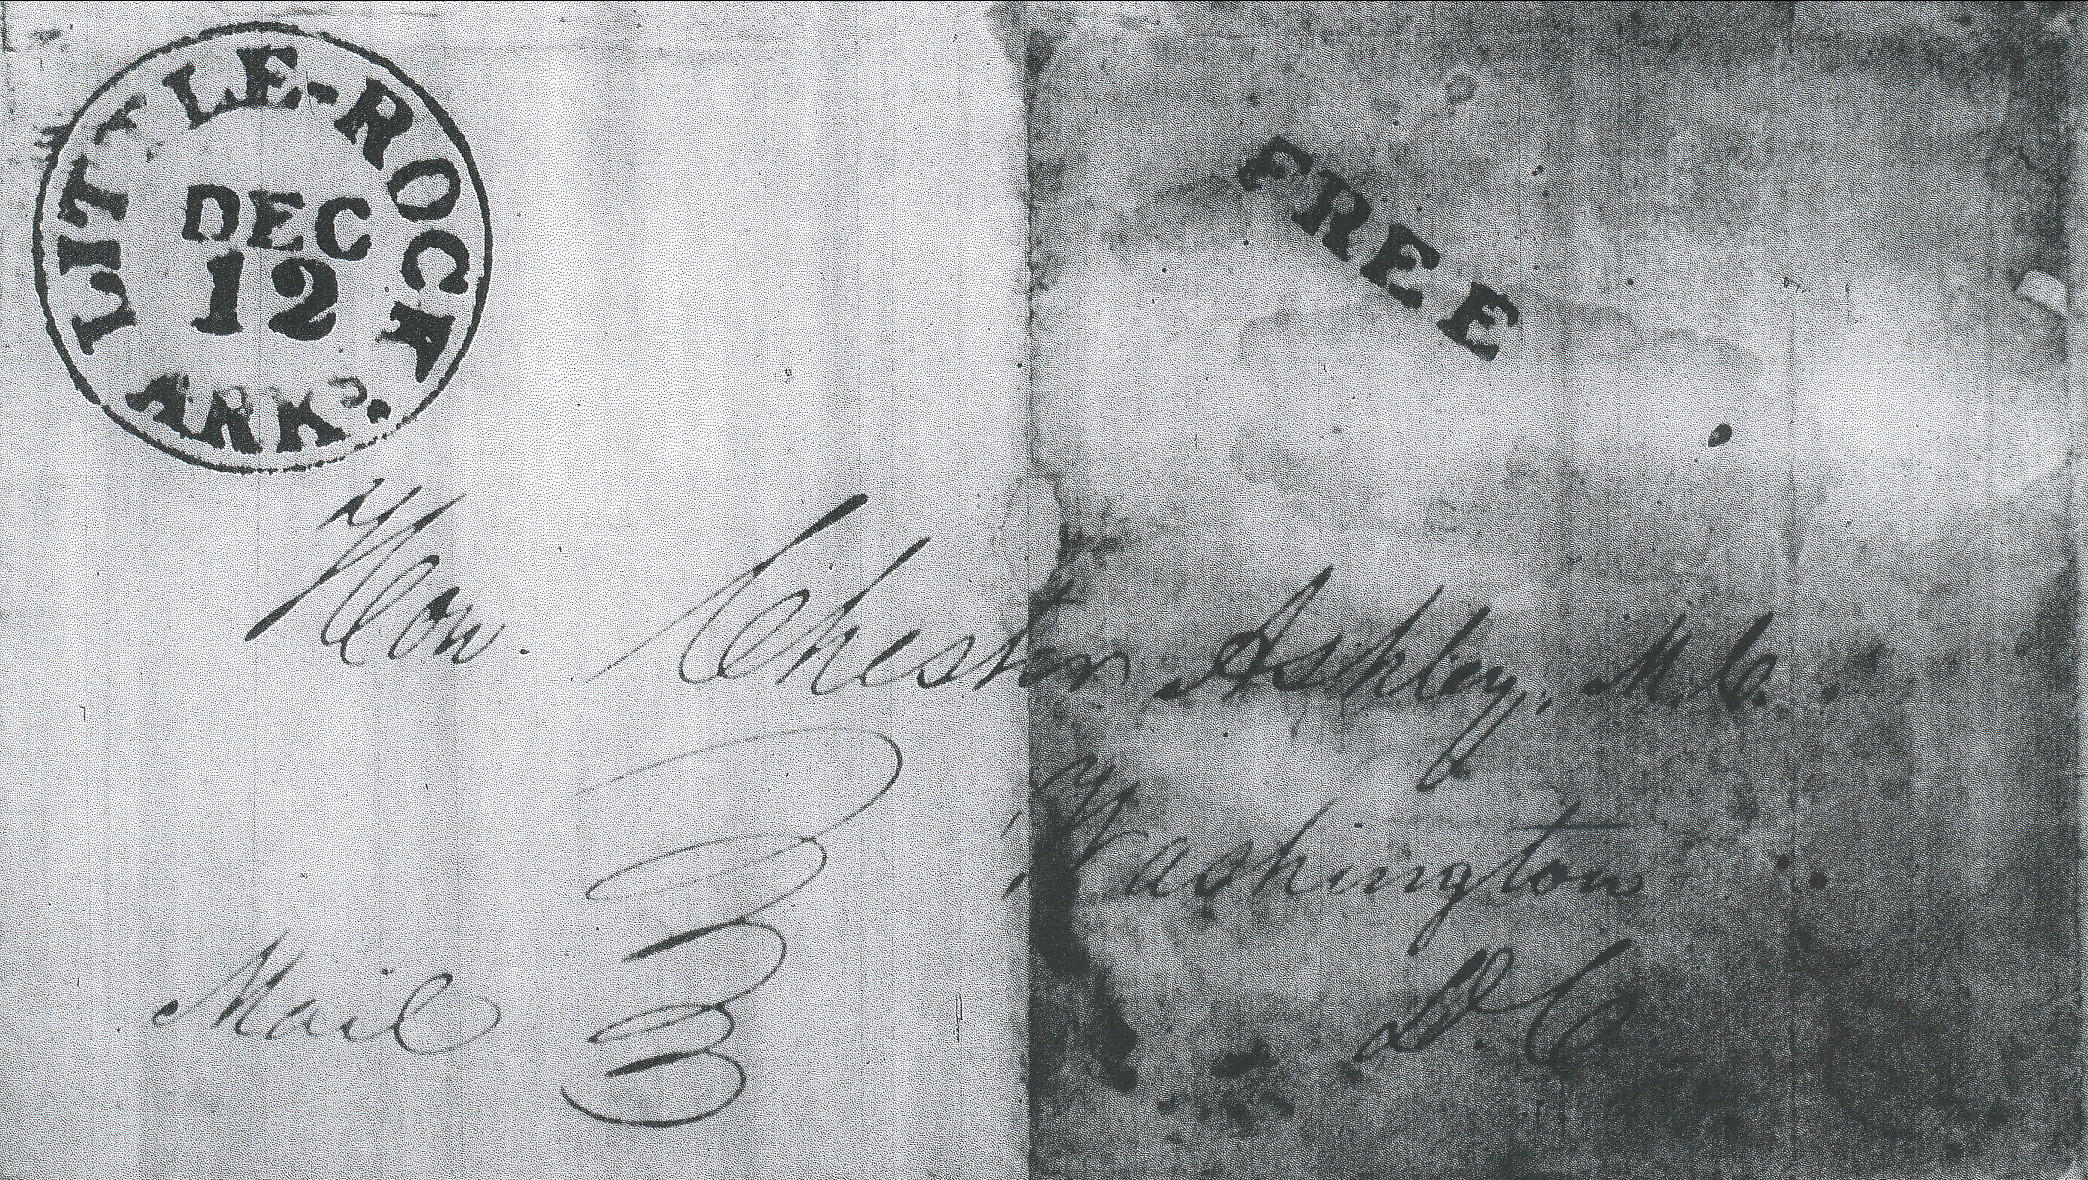 LITTLE-ROCK
DEC
12
ARKS.
FREE
Hon. Chester Ashley, M.C.
Washington
D.C.
Mail